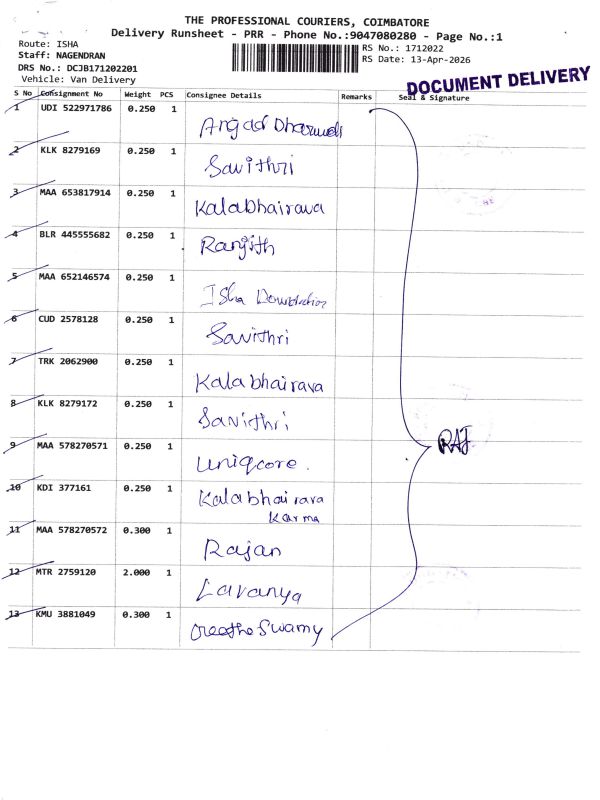 THE PROFESSIONAL COURIERS, COIMBATORE
Delivery Runsheet - PRR - Phone No.:9047080280 - Page No.:1
Route: ISHA
Staff: NAGENDRAN
DRS No.: DCJB171202201
Vehicle: Van Delivery
RS No.: 1712022
RS Date: 13-Apr-2026
DOCUMENT DELIVERY
S No Consignment No Weight PCS Consignee Details Remarks Seal & Signature
1 UDI 522971786 0.250 1
2 KLK 8279169 0.250 1 Savithri
3 MAA 653817914 0.250 1 Kalabhairava
4 BLR 445555682 0.250 1 Ranjith
5 MAA 652146574 0.250 1 Isha
6 CUD 2578128 0.250 1 Savithri
7 TRK 2062900 0.250 1 Kalabhairava
8 KLK 8279172 0.250 1 Savithri
9 MAA 578270571 0.250 1 Uniqcore.
10 KDI 377161 0.250 1 Kalabhairava
Karma
11 MAA 578270572 0.300 1 Rajan
12 MTR 2759120 2.000 1 Lavanya
13 KMU 3881049 0.300 1 Swamy
RAJ